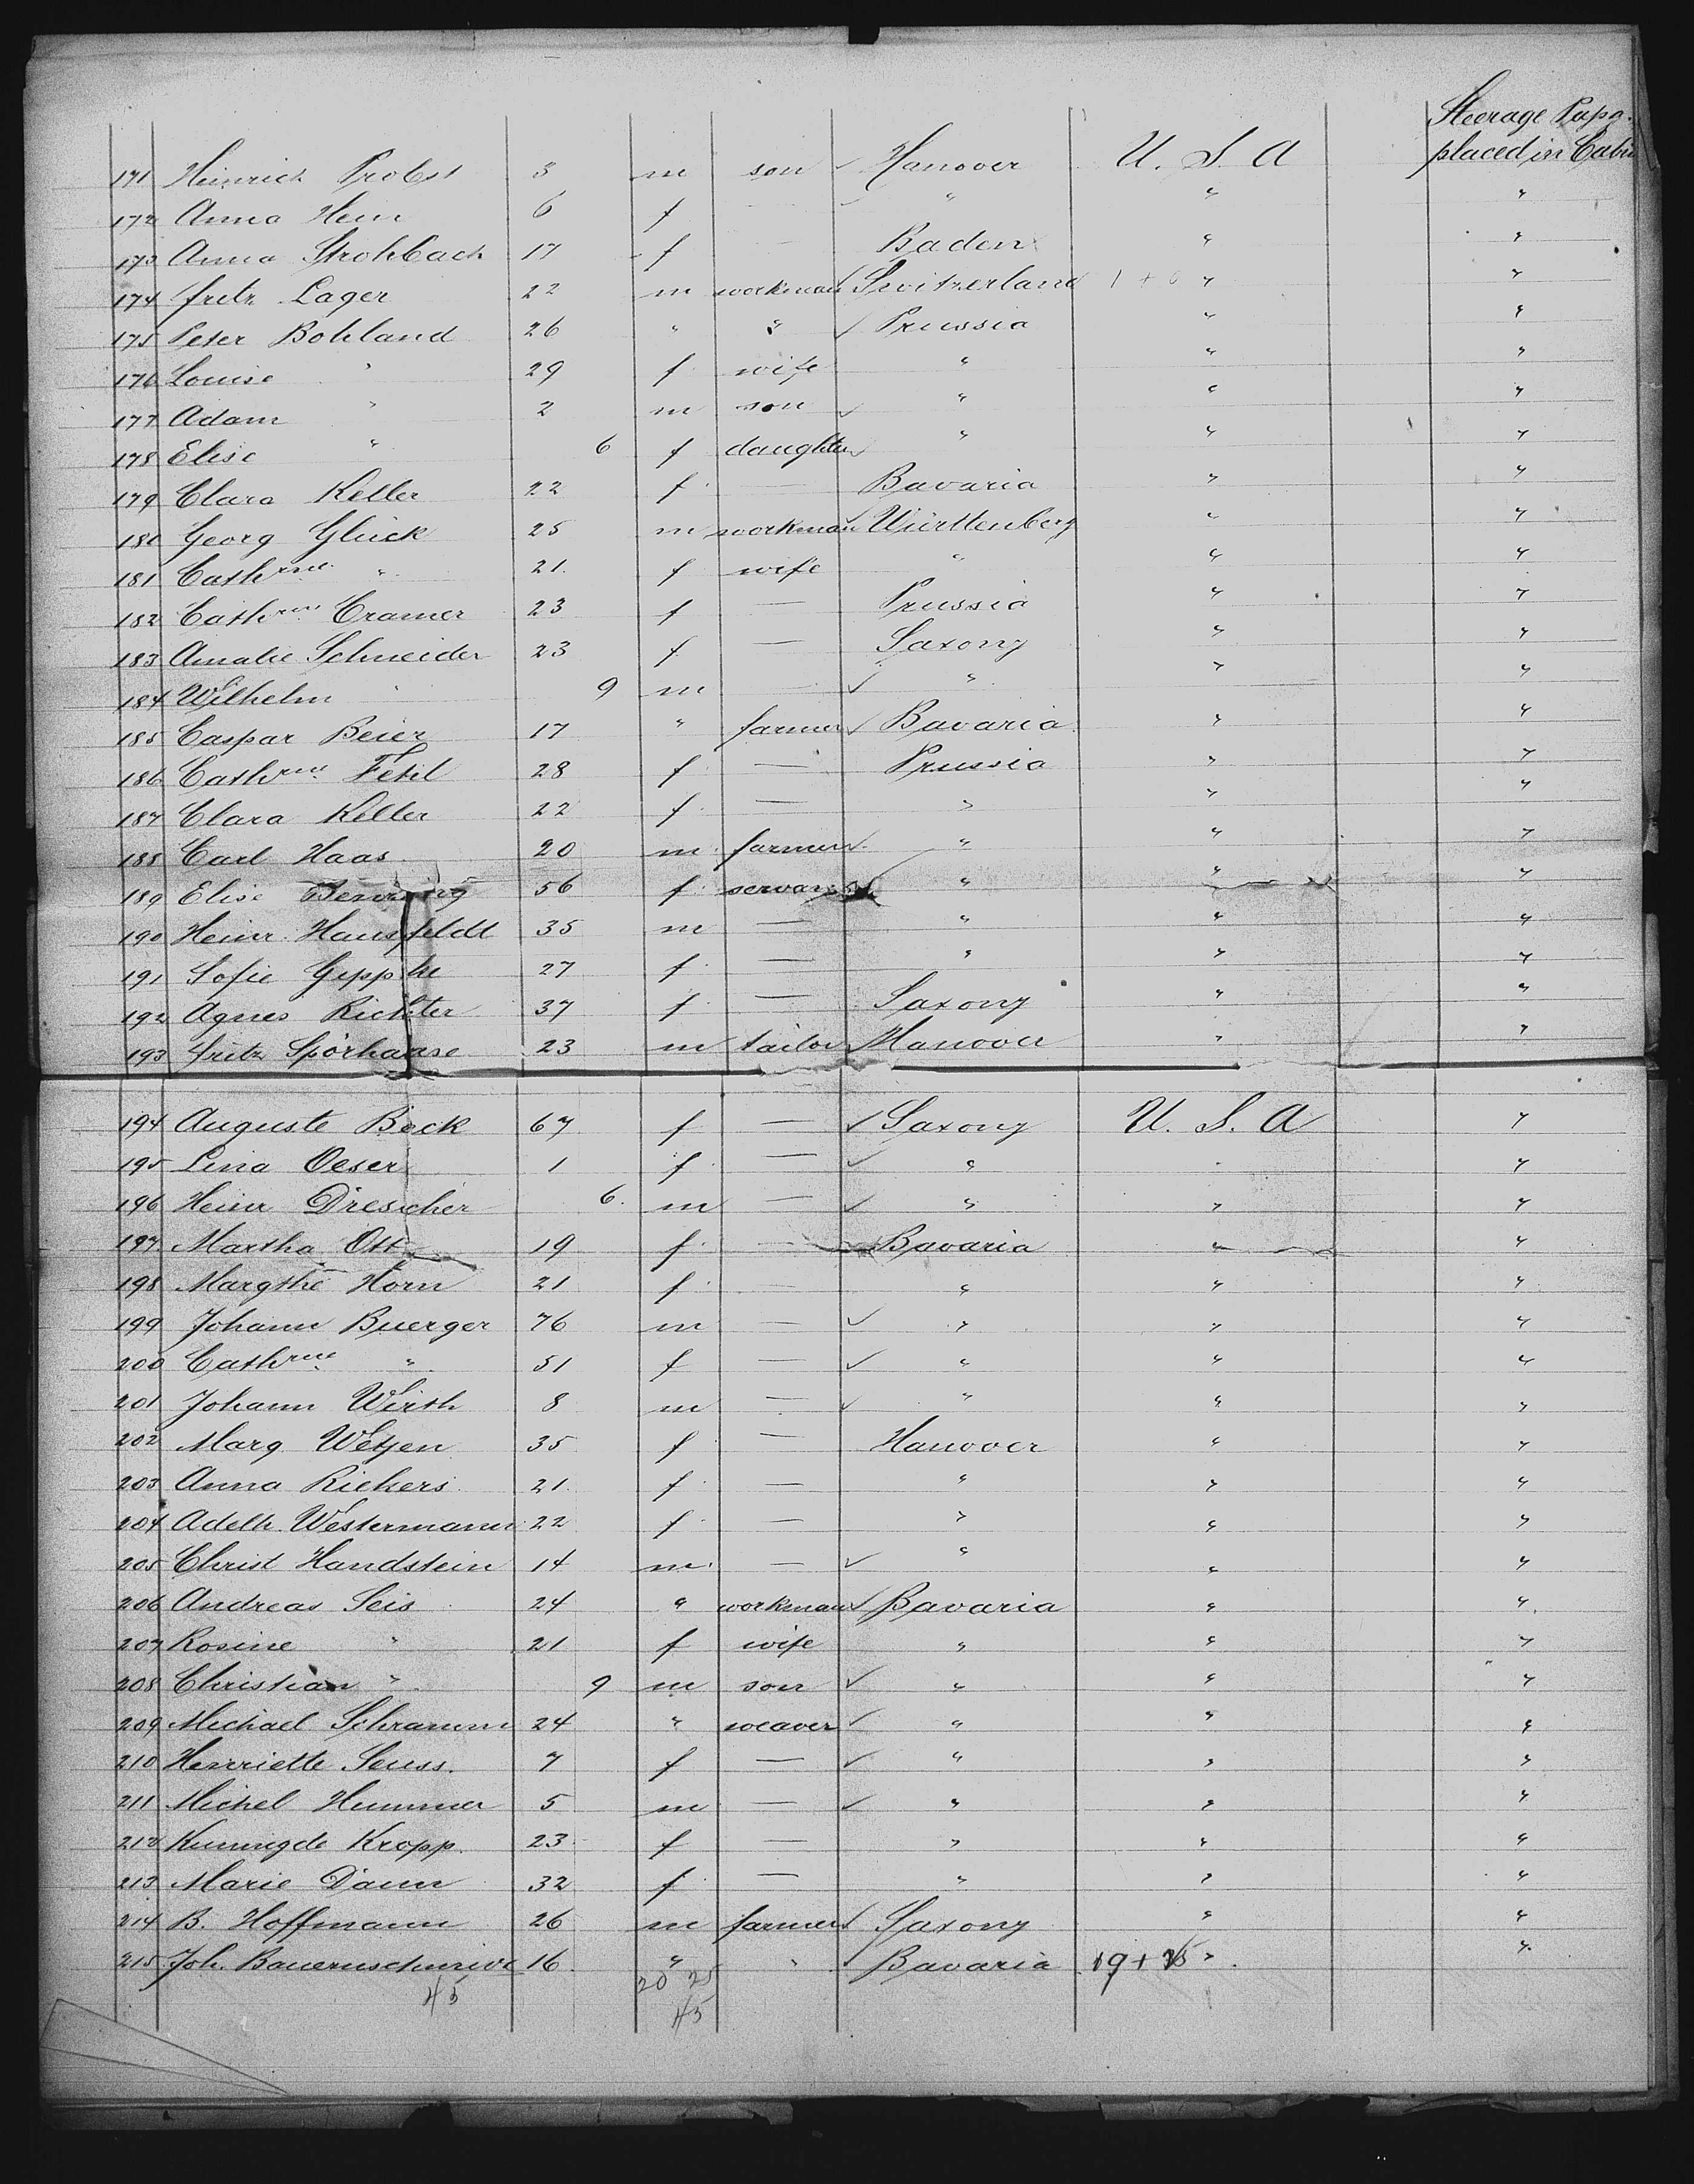 Steerage Pasg.
placed in Cabin
171 Heinrich Probst 3 m son ✓ Hanover U. S. A
172 Anna Hein 6 f — ✓ " " "
173 Anna Strohbach 17 f — Baden " "
174 Fritz Lager 22 m workman ✓ Switzerland 1 + 0 " "
175 Peter Bohland 26 " " ✓ Prussia " "
176 Louise " 29 f wife " " "
177 Adam " 2 m son ✓ " " "
178 Elise " 6 f daughter ✓ " " "
179 Clara Keller 22 f — Bavaria " "
180 Georg Glück 25 m workman ✓ Württenberg " "
181 Cathrine " 21. f wife " " "
182 Cathrine Cramer 23 f — Prussia " "
183 Amalie Schneider 23 f — Saxony " "
184 Wilhelm " 9 m — ✓ " " "
185 Caspar Beier 17 " farmer ✓ Bavaria " "
186 Cathrine Fehl 28 f — Prussia " "
187 Clara Keller 22 f — " " "
188 Carl Haas 20 m farmer ✓ " " "
189 Elise 56 f servant " " "
190 Heinr. Hausfeldt 35 m — " " "
191 Sofie Geppthe 27 f — " " "
192 Agnes Richter 37 f — Saxony " "
193 Fritz Spörhaase 23 m tailor ✓ Hanover " "
194 Auguste Bock 67 f — ✓ Saxony U. S. A "
195 Lina Oeser 1 f — ✓ " " "
196 Heinr Drescher 6. m — ✓ " " "
197 Martha Ott 19 f — Bavaria " "
198 Margthe Horn 21 f — " " "
199 Johann Buerger 76 m — ✓ " " "
200 Cathrine " 51 f — ✓ " " "
201 Johann Wirth 8 m — ✓ " " "
202 Marg. Wetjen 35 f — Hanover " "
203 Anna Riekers 21. f — " " "
204 Adelh. Westermann 22 f — " " "
205 Christ Handstein 14 m. — ✓ " " "
206 Andreas Seis 24 " workman ✓ Bavaria " "
207 Rosine " 21 f wife " " "
208 Christian " 9 m son ✓ " " "
209 Michael Schramm 24 " weaver ✓ " " "
210 Henriette Seuss. 7 f — ✓ " " "
211 Michel Hummer 5 m — ✓ " " "
212 Kunnigde Kropp. 23 f — " " "
213 Marie Daum 32 f — " " "
214 B. Hoffmann 26 m farmer ✓ Saxony " "
215 Joh. 16 " " ✓ Bavaria 19 + " "
45 20 25
45